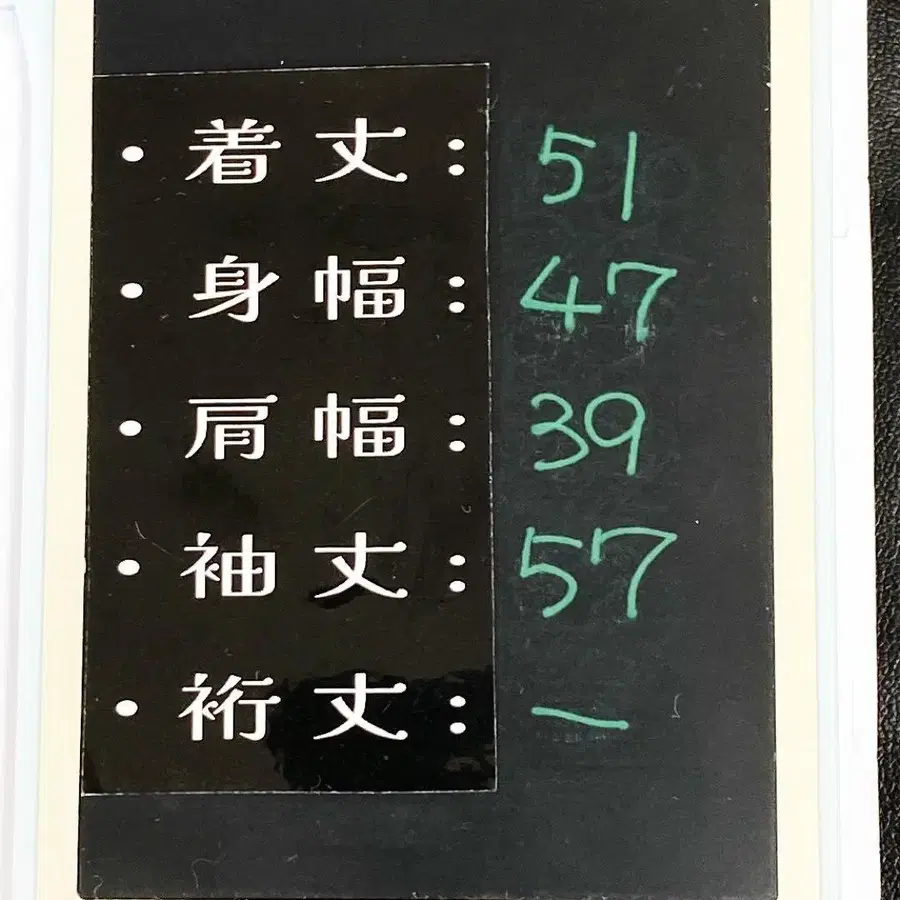 ・着丈：51
・身幅：47
・肩幅：39
・袖丈：57
・裄丈：—